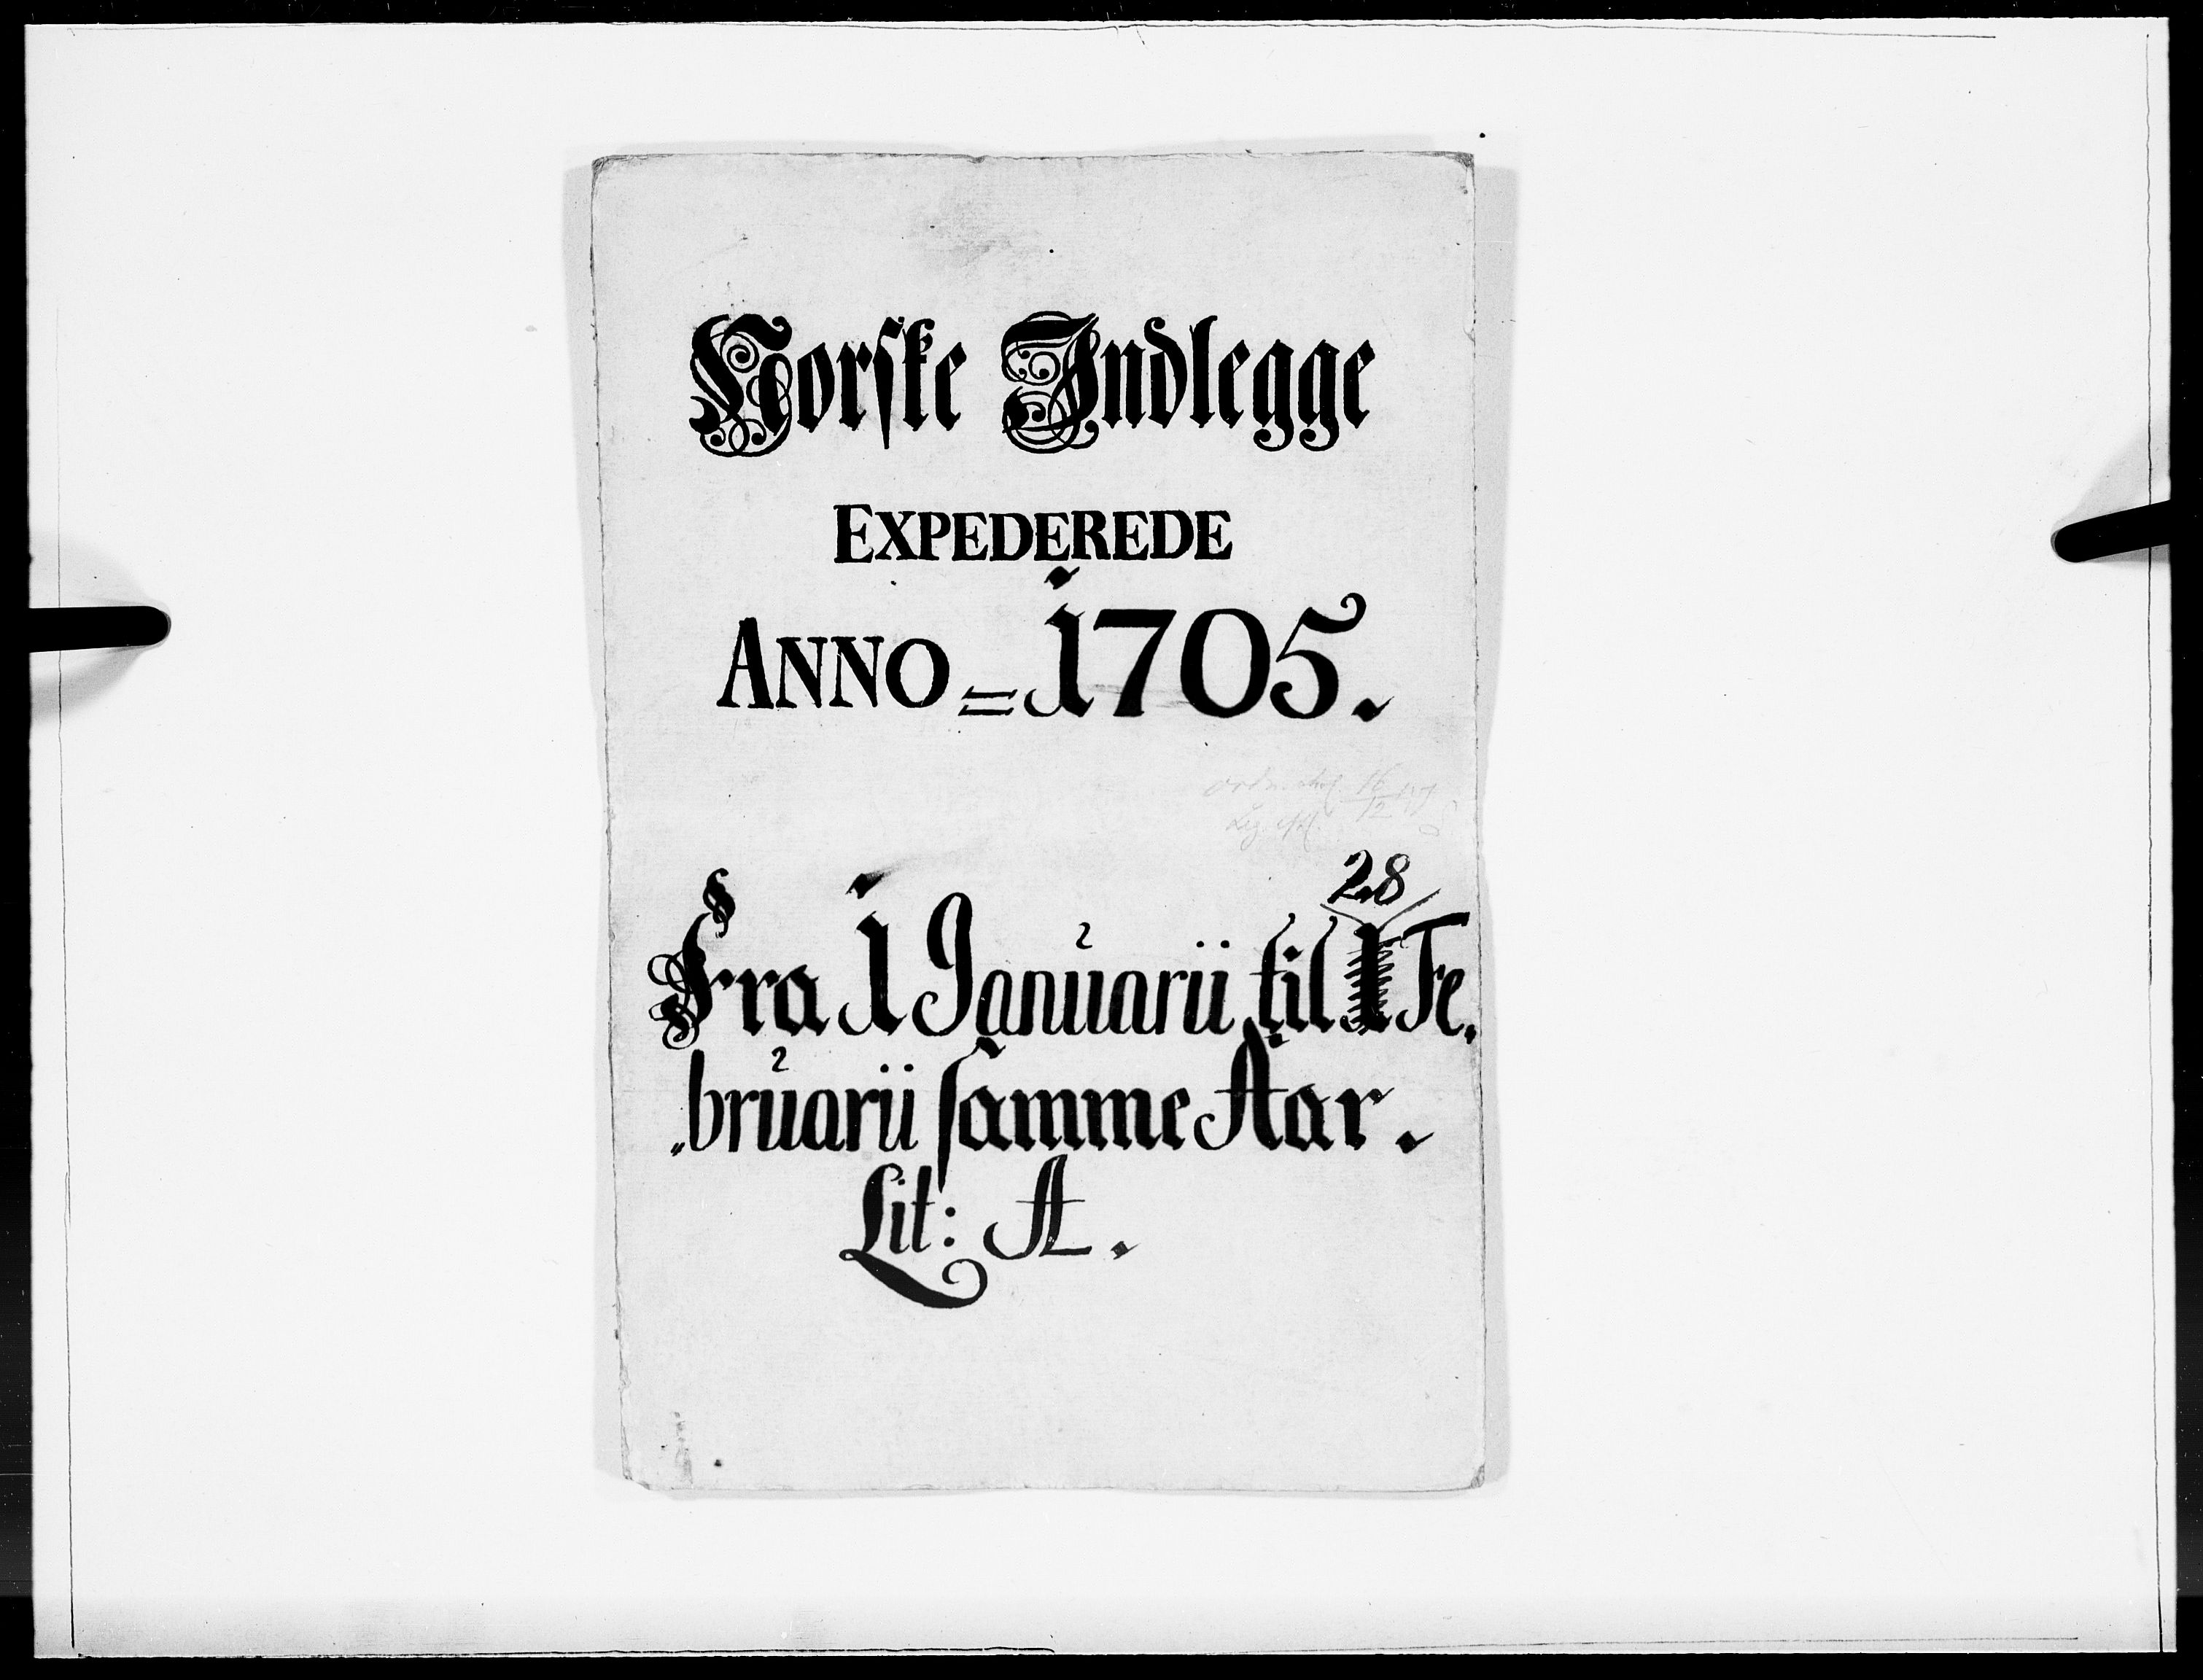 Norske Indlegge
EXPEDEREDE
ANNO = 1705.
28
Fra 1 Januarii til 1 Fe.
"bruarii samme Aar.
Lit: A.